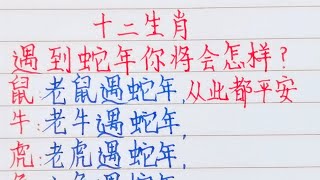 十二生肖
遇到蛇年你将会怎样?
鼠:老鼠遇蛇年,从此都平安
牛:老牛遇蛇年,
虎:老虎遇蛇年,